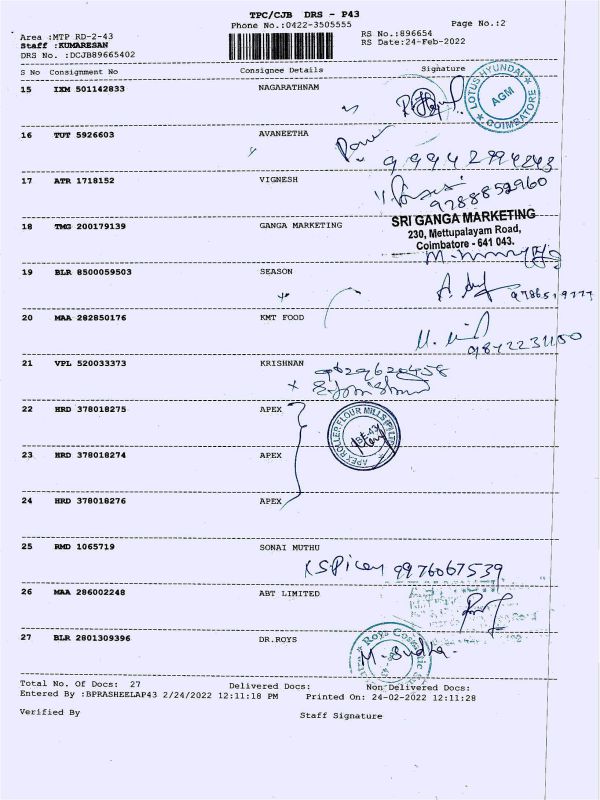 TPC/CJB DRS - P43
Phone No.:0422-3505555 Page No.:2
Area :MTP RD-2-43 RS No.:896654
Staff :KUMARESAN RS Date:24-Feb-2022
DRS No. :DCJB89665402
S No Consignment No Consignee Details Signature
15 IXM 501142833 NAGARATHNAM
LOTUS HYUNDAI AGM COIMBATORE
16 TUT 5926603 AVANEETHA
9994299 4243
17 ATR 1718152 VIGNESH
9788852960
18 TMG 200179139 GANGA MARKETING
SRI GANGA MARKETING
230, Mettupalayam Road,
Coimbatore - 641 043.
19 BLR 8500059503 SEASON
20 MAA 282850176 KMT FOOD
9842231150
21 VPL 520033373 KRISHNAN
22 HRD 378018275 APEX
APEX ROLLER FLOUR MILLS (P) LTD
23 HRD 378018274 APEX
24 HRD 378018276 APEX
25 RMD 1065719 SONAI MUTHU
9976067539
26 MAA 286002248 ABT LIMITED
27 BLR 2801309396 DR.ROYS
M. Sudha
Total No. Of Docs: 27 Delivered Docs: Non Delivered Docs:
Entered By :BPRASHEELAP43 2/24/2022 12:11:18 PM Printed On: 24-02-2022 12:11:28
Verified By Staff Signature